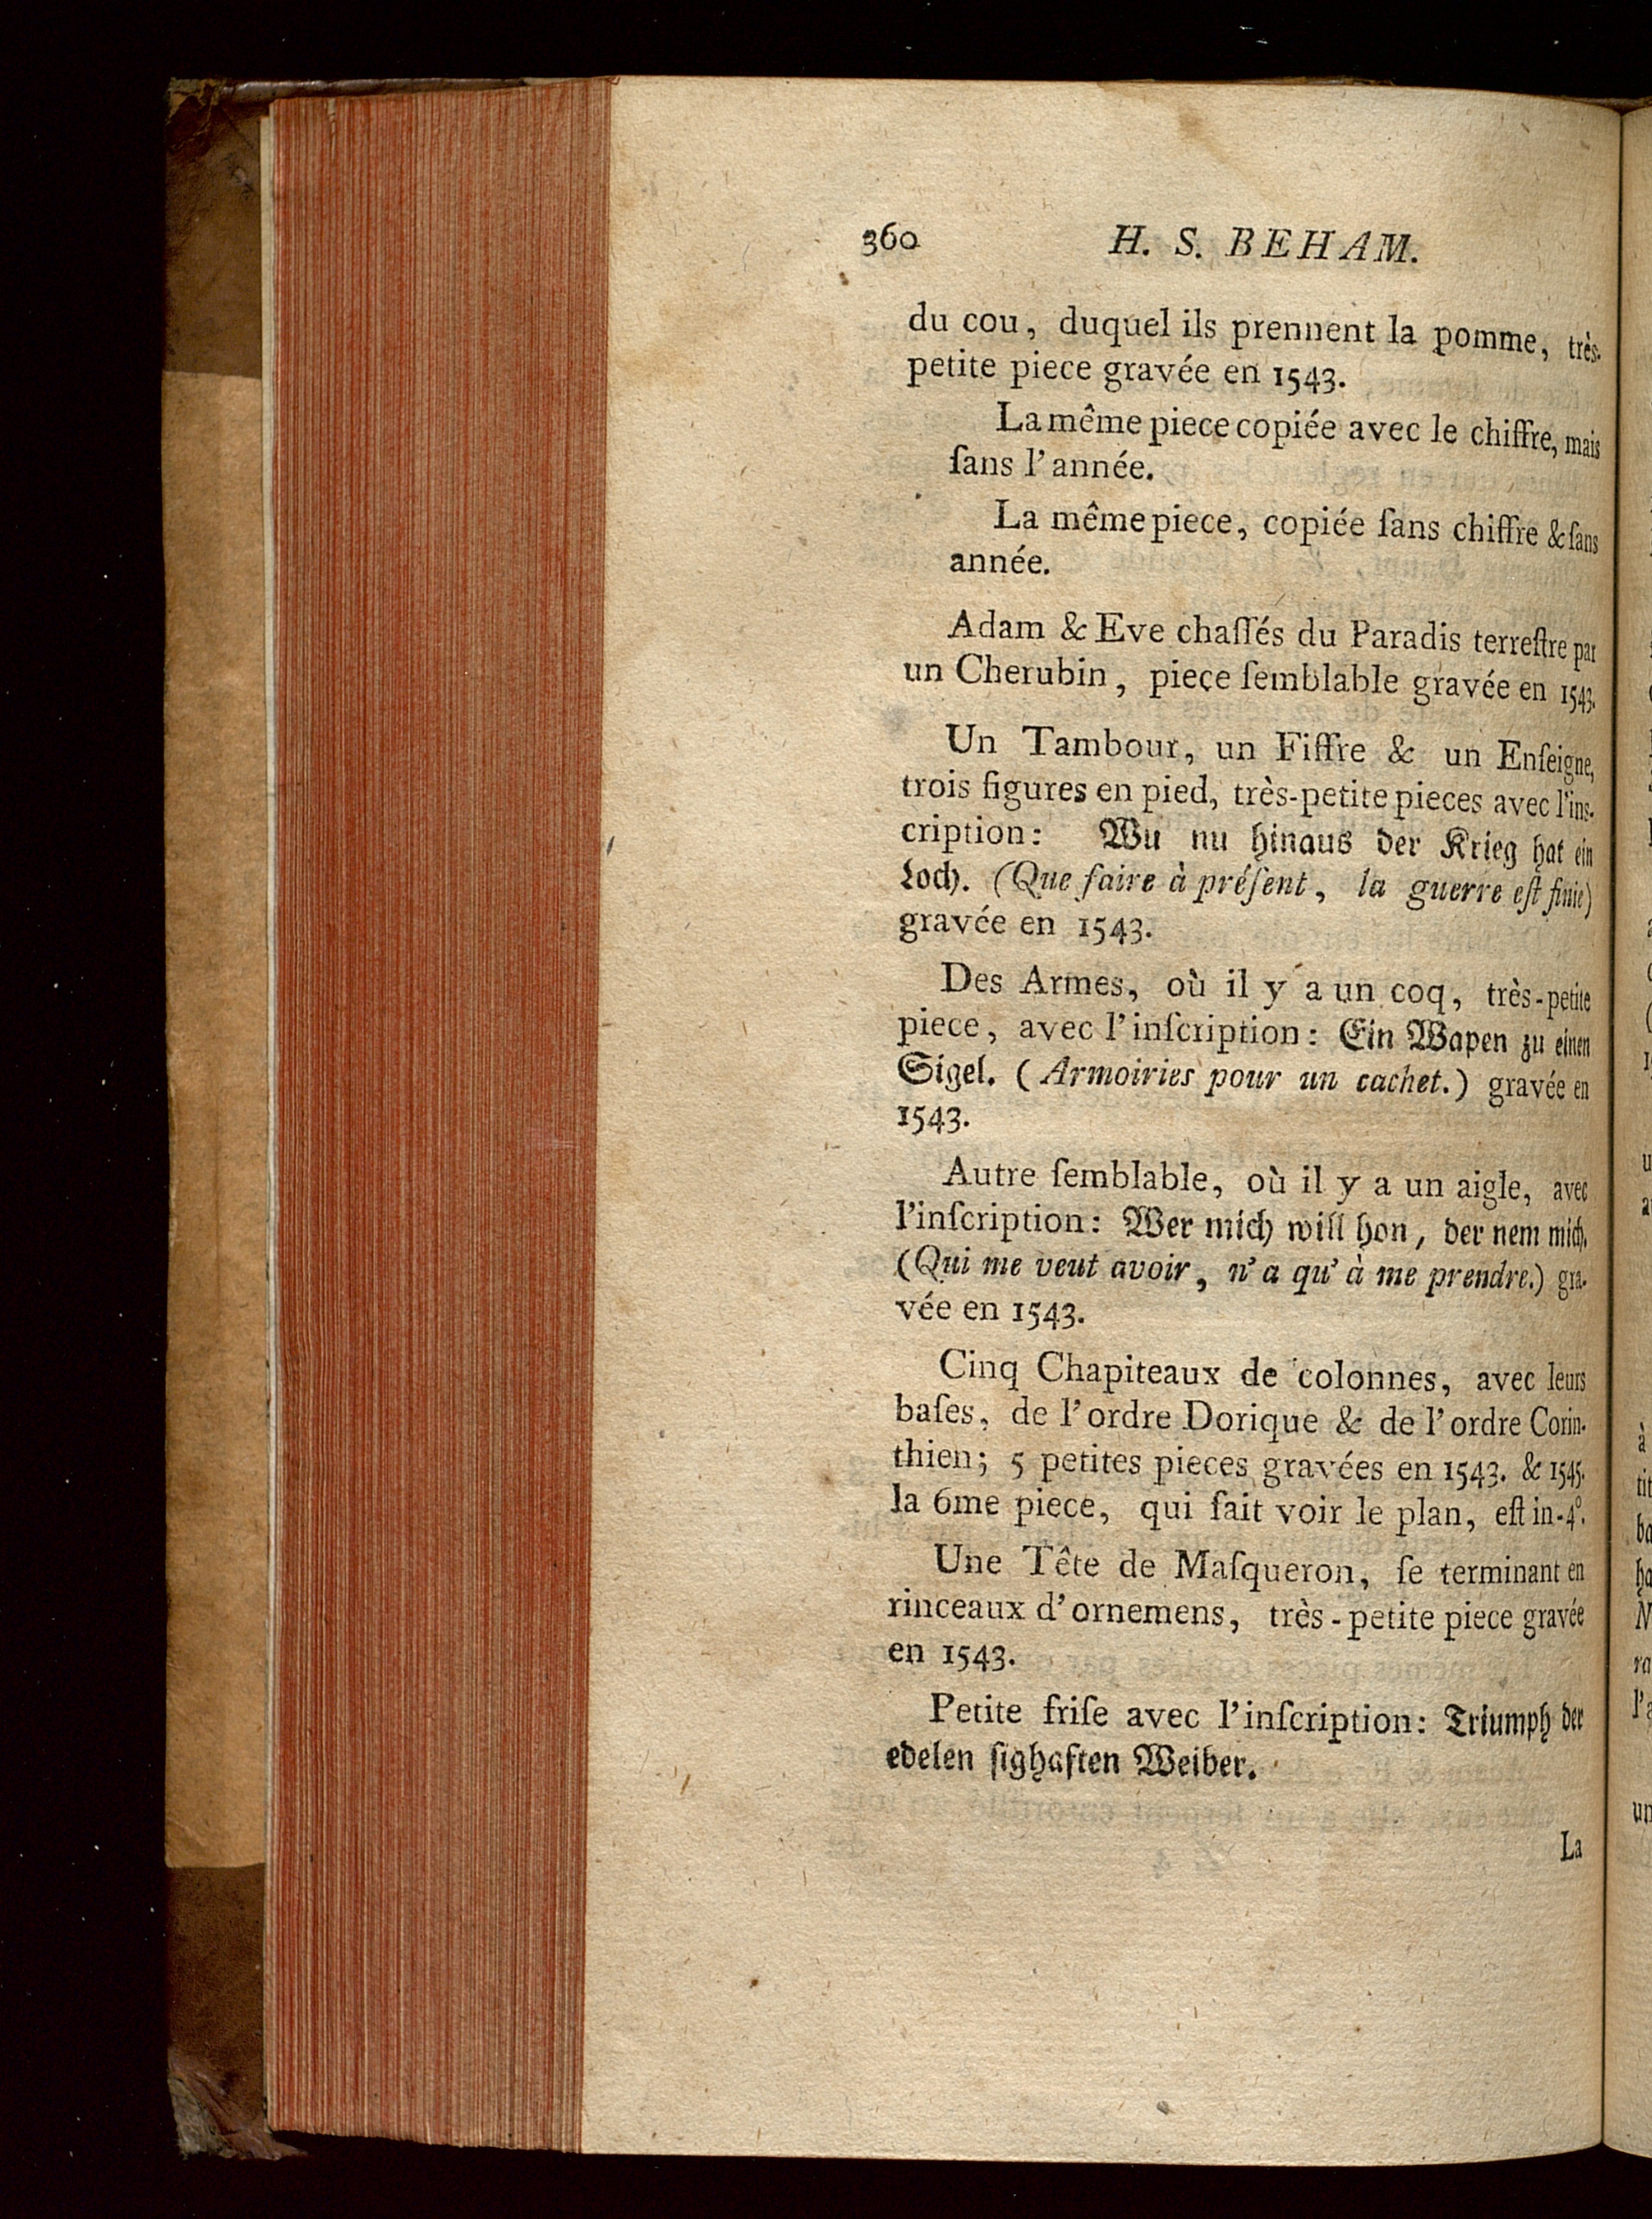 360 H. S. BEHAM.
du cou, duquel ils prennent la pomme, très-
petite piece gravée en 1543.
La même piece copiée avec le chiffre, mais
ſans l'année.
La même piece, copiée ſans chiffre & ſans
année.
Adam & Eve chaſſés du Paradis terreſtre par
un Cherubin, piece ſemblable gravée en 1543.
Un Tambour, un Fiffre & un Enſeigne,
trois figures en pied, très-petite pieces avec l'ins-
cription: Wu nu hinaus der Krieg hat ein
Loch. (Que faire à préſent, la guerre eſt finie)
gravée en 1543.
Des Armes, où il y a un coq, très-petite
piece, avec l'inſcription: Ein Wapen zu einen
Sigel. (Armoiries pour un cachet.) gravée en
1543.
Autre ſemblable, où il y a un aigle, avec
l'inſcription: Wer mich will hon, der nem mich.
(Qui me veut avoir, n'a qu'à me prendre.) gra-
vée en 1543.
Cinq Chapiteaux de colonnes, avec leurs
baſes, de l'ordre Dorique & de l'ordre Corin-
thien; 5 petites pieces gravées en 1543. & 1545.
la 6me piece, qui fait voir le plan, eſt in-4°.
Une Tête de Maſqueron, ſe terminant en
rinceaux d'ornemens, très-petite piece gravée
en 1543.
Petite friſe avec l'inſcription: Triumph der
edelen ſighaften Weiber.
La